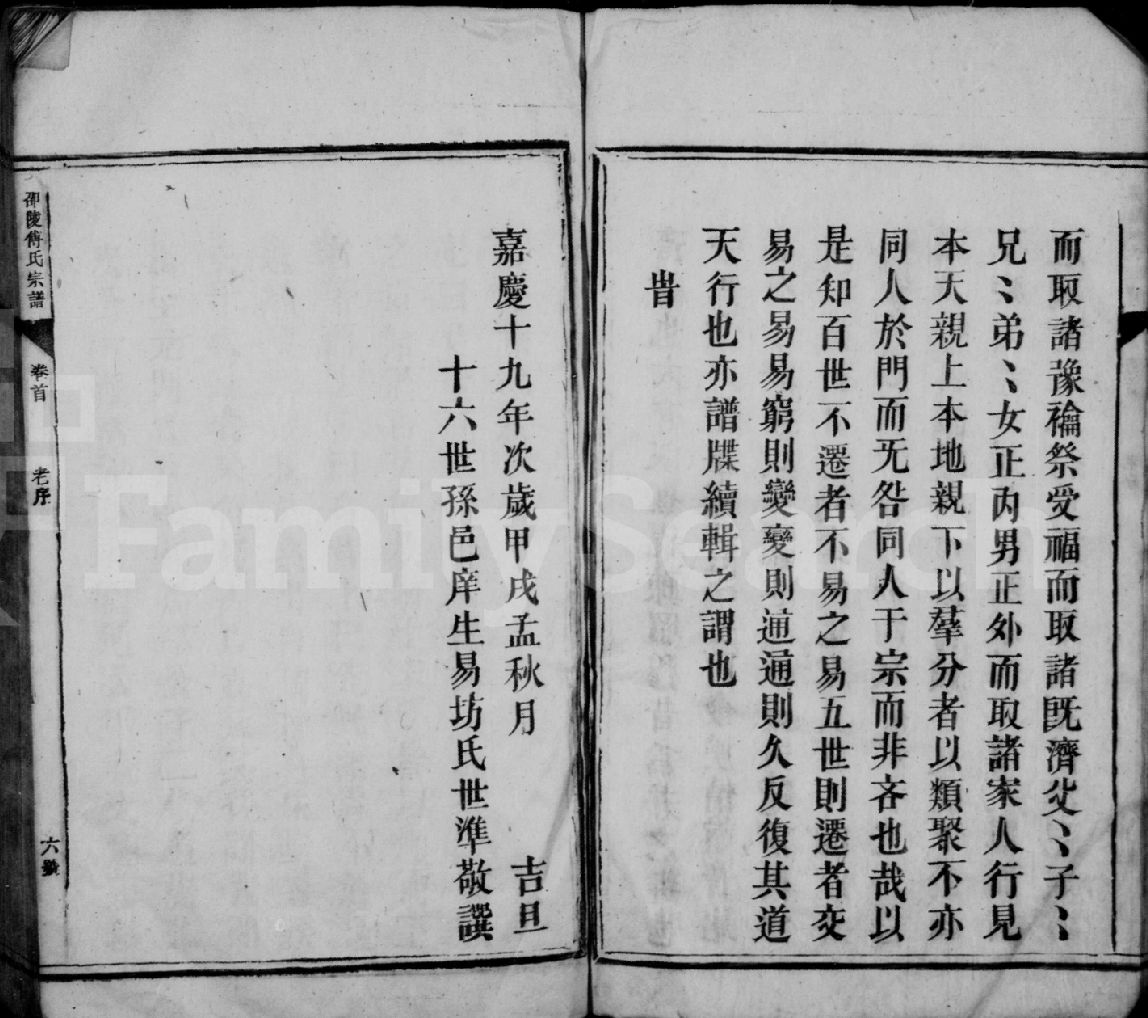 而取諸豫禴祭受福而取諸既濟父〻子〻
兄〻弟〻女正內男正外而取諸家人行見
本天親上本地親下以羣分者以類聚不亦
同人於門而无咎同人于宗而非吝也哉以
是知百世不遷者不易之易五世則遷者交
易之易易窮則變變則通通則久反復其道
天行也亦譜牒續輯之謂也
旹
嘉慶十九年次歲甲戌孟秋月　吉旦
十六世孫邑庠生易坊氏世準敬譔
邵陵傅氏宗譜　卷首　老序　六
FamilySearch